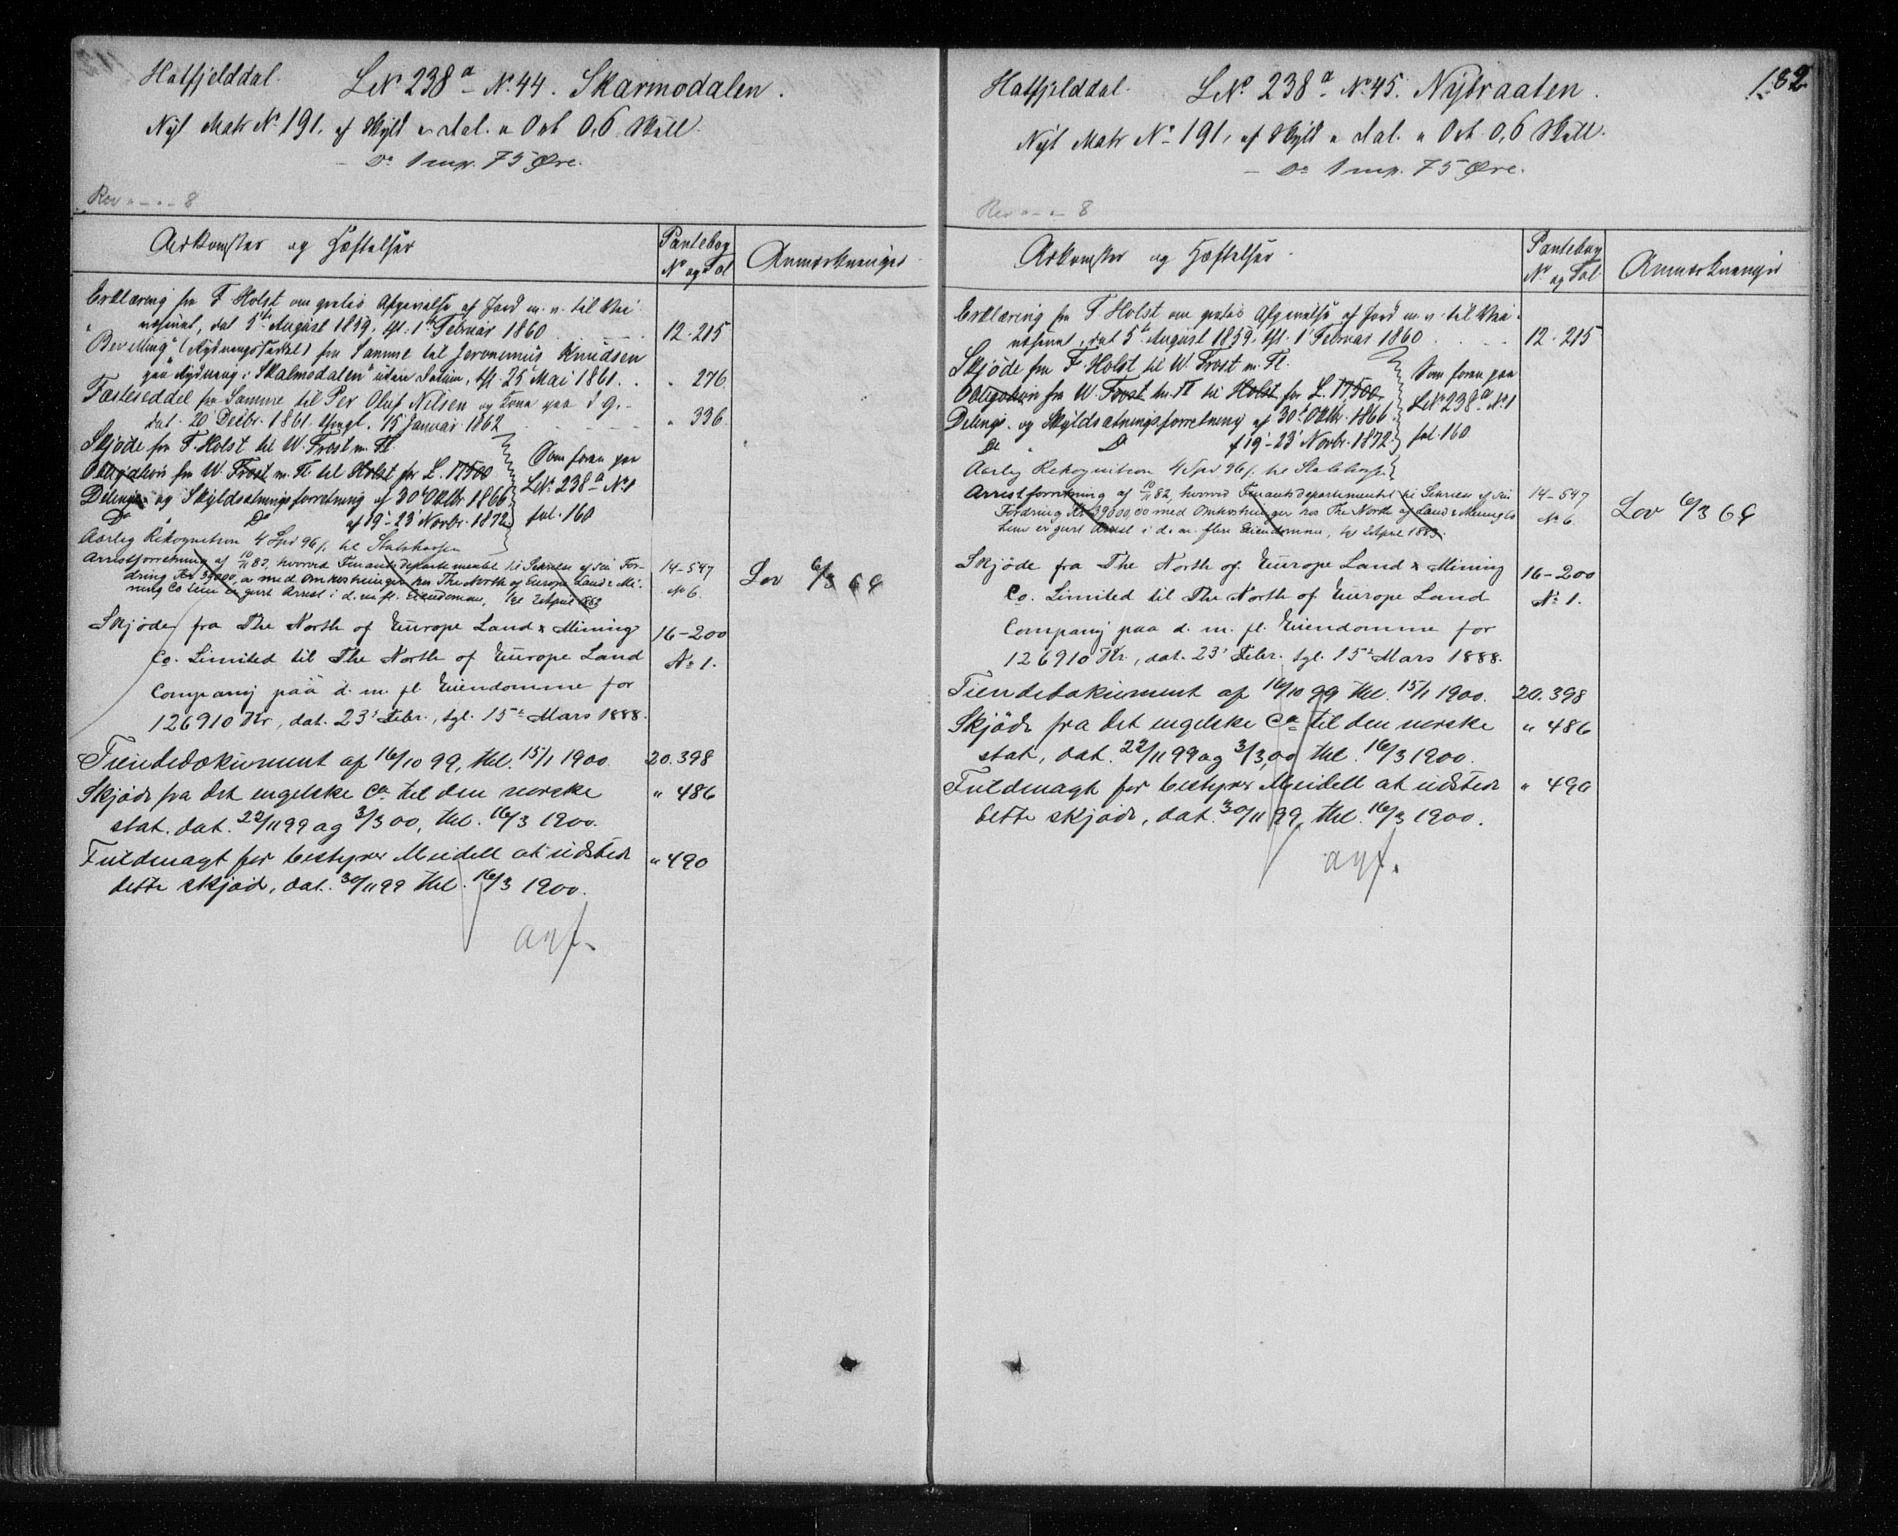 Hatfjelddal. LNº 238a - Nº 44. Skarmodalen.
Nyt Matr Nº 191, af Skyld „ dal. „ Ort 0,6 Skill.
— Dº 1 mrk. 75 Øre.
Rev „ - „ - 8
Adkomster og Hæftelser
Pantebog
Nº og Fol
Anmærkninger
Erklæring fra F Holst om gratis Afgivelse af Jord m. v. til
dat 5te August 1859, tgl. 1te Februar 1860 12. 215
Bevilling (Rydningsseddel) fra Samme til Jeronimus Knudsen
paa Rydning i "Skalmodalen" uden Datum, tgl. 25 Mai 1861. „ 276.
Fæsteseddel fra Samme til Per Oluf Nilsen og Kone paa d g.
dat. 20 Decbr. 1861. thingl. 15 Januar 1862 „ 336.
Skjøde fra F. Holst til W. Frost m. Fl.
Obligation fra W. Frost m. Fl. til Holst for L. 17500
Delings- og Skyldsætningsforretning af 30te Oktbr 1866
Dº Dº af 19 - 23 Novbr. 1872
Som foran paa
LNº 238a Nº 1
fol. 160
Aarlig Rekognition 4 Spd 96 ſ. til Statskassen
Arrestforretning af 10/11 82, hvorved Finantsdepartementet til Sikkerhed af sin For-
dring Kr 39000,00 med Omkostninger hos The North of Europe Land & Mi-
ning Co Lim er gjort Arrest i d. m. fl. Eiendomme, tgl 2 April 1883
14-547
Nº 6.
Lov 6/3 69
Skjøde fra The North of Europe Land & Mining
Co. Limited til The North of Europe Land
Company paa d. m. fl. Eiendomme for
126910 Kr., dat. 23' Febr., tgl. 15de Mars 1888.
16-200
Nº 1.
Tiendedokument af 16/10 99, thl. 15/1 1900. 20. 398
Skjøde fra det engelske Co til den norske „ 486
stat, dat. 22/11 99 og 3/3 00, thl. 16/3 1900.
Fuldmagt for bestyrer Meidell at udstede „ 490
dette skjøde, dat. 30/11 99 thl. 16/3 1900.
anf.
182
Hatfjelddal. LNº 238a Nº 45. Nybraaten.
Nyt Matr Nº 191, af Skyld „ dal. „ Ort 0,6 Skill.
— Dº 1 mrk. 75 Øre.
Rev „ - „ - 8
Adkomster og Hæftelser.
Pantebog
Nº og Fol
Anmærkninger
Erklæring fra F Holst om gratis Afgivelse af Jord m. v. til
dat 5te August 1859, tgl. 1 Februar 1860 12. 215
Skjøde fra F Holst til W. Frost m. Fl.
Obligation fra W. Frost m. Fl til Holst for L. 17500
Delings- og Skyldsætningsforretning af 30te Oktbr. 1866
Dº „ Dº af 19 - 23 Novbr. 1872
Som foran paa
LNº 238a Nº 1
fol. 160
Aarlig Rekognition 4 Spd 96 ſ. til Statskassen
Arrestforretning af 10/11 82, hvorved Finantsdepartementet til Sikkerhed af sin
Fordring Kr 39000,00 med Omkostninger hos The North of Land & Mining Co
Lim er gjort Arrest i d. m. flere Eiendomme, tgl 2 April 1883.
14-547
Nº 6
Lov 6/3 69
Skjøde fra The North of Europe Land & Mining
Co. Limited til The North of Europe Land
Company paa d. m. fl. Eiendomme for
126910 Kr., dat. 23' Febr. tgl. 15de Mars 1888.
16-200
Nº 1.
Tiendedokument af 16/10 99 thl. 15/1 1900. 20. 398
Skjøde fra det engelske Co til den norske „ 486
stat, dat. 22/11 99 og 3/3,00 thl. 16/3 1900.
Fuldmagt for bestyrer Meidell at udstede „ 490
dette skjøde, dat. 30/11 99, thl. 16/3 1900.
anf.